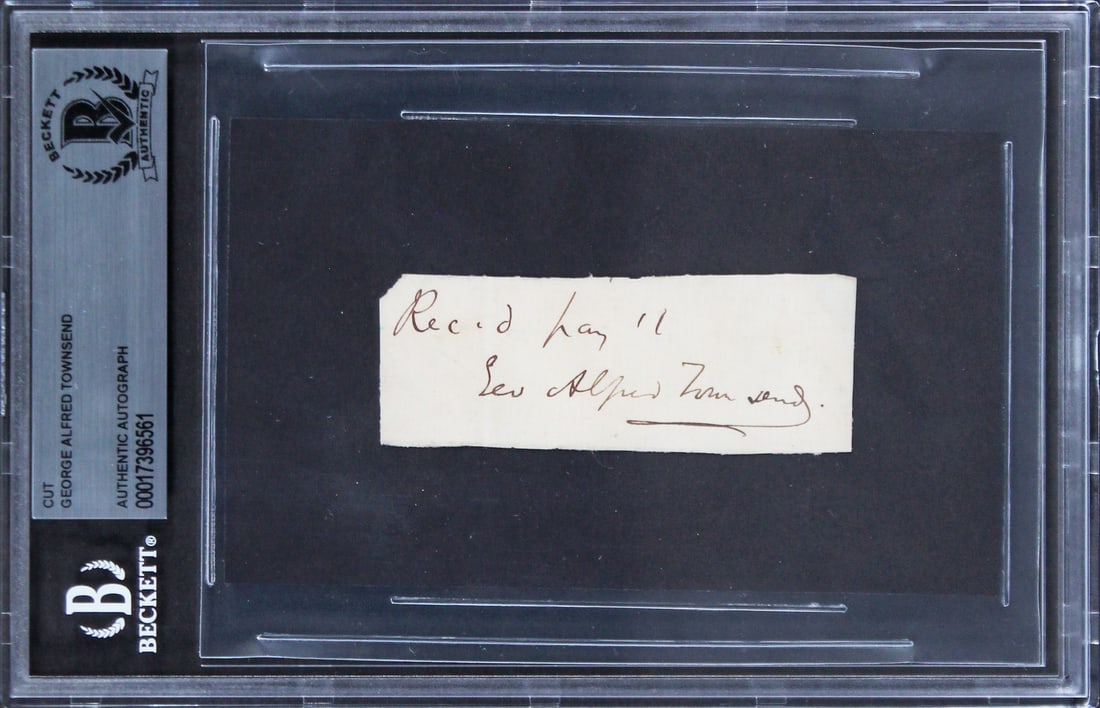 BECKETT
AUTHENTIC
CUT
GEORGE ALFRED TOWNSEND
AUTHENTIC AUTOGRAPH
00017396561
B BECKETT®
Rec'd pay't
Geo Alfred Townsend.